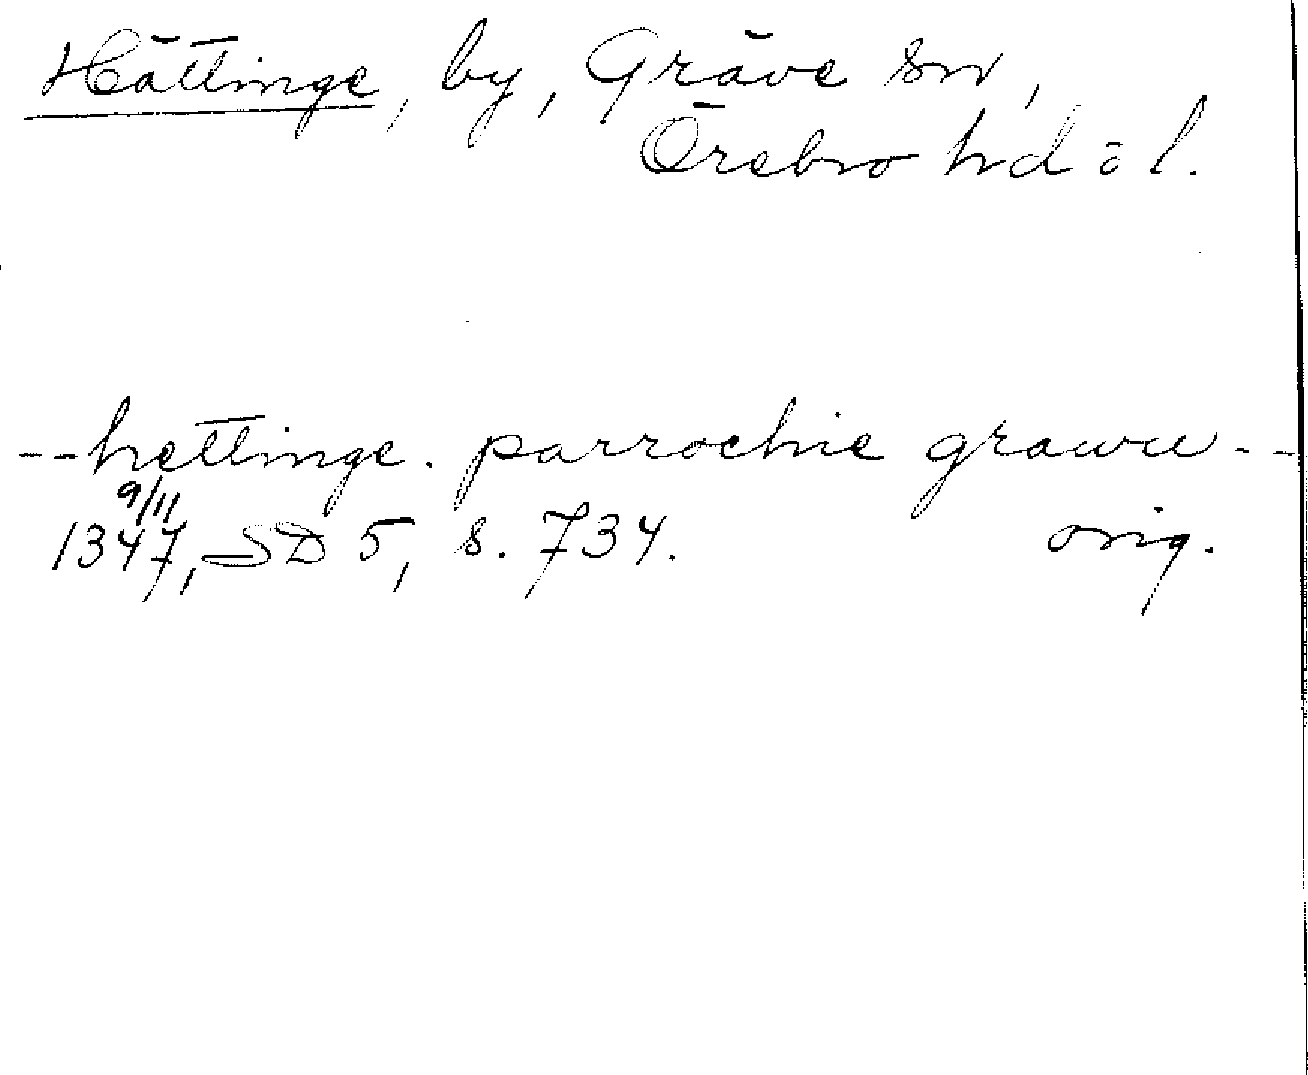 Hättinge, by, Gräve sn,
Örebro hd o l.
--hettinge. parrochie grawu--
9/11
1347, SD 5, s. 734. orig.